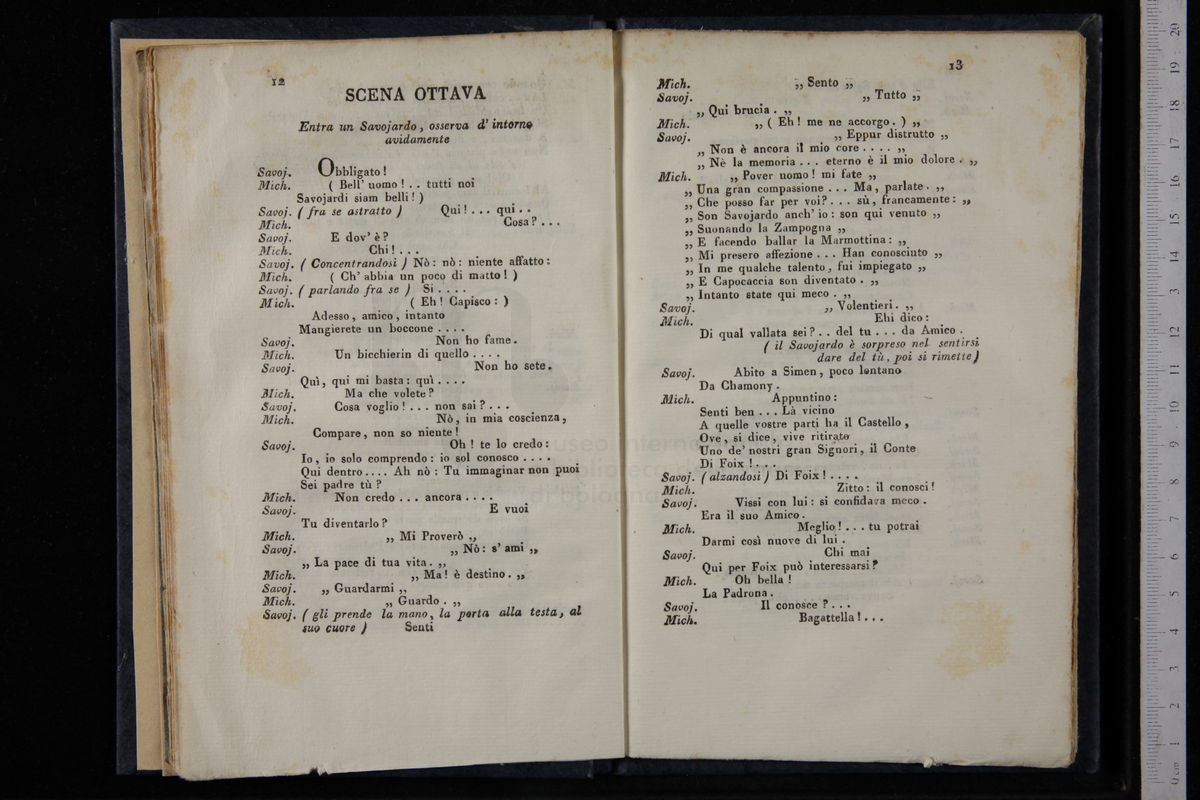 12
SCENA OTTAVA
Entra un Savojardo, osserva d'intorno
avidamente
Savoj. Obbligato!
Mich. ( Bell' uomo! . . tutti noi
Savojardi siam belli! )
Savoj. ( fra se astratto ) Qui! . . . qui . .
Mich. Cosa? . . .
Savoj. E dov' è?
Mich. Chi! . . .
Savoj. ( Concentrandosi ) Nò: nò: niente affatto:
Mich. ( Ch' abbia un poco di matto! )
Savoj. ( parlando fra se ) Si . . . .
Mich. ( Eh! Capisco: )
Adesso, amico, intanto
Mangierete un boccone . . . .
Savoj. Non ho fame.
Mich. Un bicchierin di quello . . . .
Savoj. Non ho sete.
Quì, qui mi basta: quì . . . .
Mich. Ma che volete?
Savoj. Cosa voglio! . . . non sai? . . .
Mich. Nò, in mia coscienza,
Compare, non so niente!
Savoj. Oh! te lo credo:
Io, io solo comprendo: io sol conosco . . . .
Qui dentro . . . . Ah nò: Tu immaginar non puoi
Sei padre tù?
Mich. Non credo . . . ancora . . . .
Savoj. E vuoi
Tu diventarlo?
Mich. ,, Mi Proverò ,,
Savoj. ,, Nò: s' ami ,,
,, La pace di tua vita. ,,
Mich. ,, Ma! è destino. ,,
Savoj. ,, Guardarmi ,,
Mich. ,, Guardo. ,,
Savoj. ( gli prende la mano, la porta alla testa, al
suo cuore ) Senti
13
Mich. ,, Sento ,,
Savoj. ,, Tutto ,,
,, Qui brucia. ,,
Mich. ,, ( Eh! me ne accorgo. ) ,,
Savoj. ,, Eppur distrutto ,,
,, Non è ancora il mio core . . . . ,,
,, Nè la memoria . . . eterno è il mio dolore. ,,
Mich. ,, Pover uomo! mi fate ,,
,, Una gran compassione . . . Ma, parlate. ,,
,, Che posso far per voi? . . . sù, francamente: ,,
,, Son Savojardo anch' io: son qui venuto ,,
,, Suonando la Zampogna ,,
,, E facendo ballar la Marmottina: ,,
,, Mi presero affezione . . . Han conosciuto ,,
,, In me qualche talento, fui impiegato ,,
,, E Capocaccia son diventato. ,,
,, Intanto state qui meco. ,,
Savoj. ,, Volentieri. ,,
Mich. Ehi dico:
Di qual vallata sei? . . del tu . . . da Amico.
( il Savojardo è sorpreso nel sentirsi
dare del tù, poi si rimette )
Savoj. Abito a Simen, poco lontano
Da Chamony.
Mich. Appuntino:
Senti ben . . . Là vicino
A quelle vostre parti ha il Castello,
Ove, si dice, vive ritirato
Uno de' nostri gran Signori, il Conte
Di Foix! . . .
Savoj. ( alzandosi ) Di Foix! . . . .
Mich. Zitto: il conosci!
Savoj. Vissi con lui: si confidava meco.
Era il suo Amico.
Mich. Meglio! . . . tu potrai
Darmi così nuove di lui.
Savoj. Chi mai
Qui per Foix può interessarsi?
Mich. Oh bella!
La Padrona.
Savoj. Il conosce? . . .
Mich. Bagattella! . . .